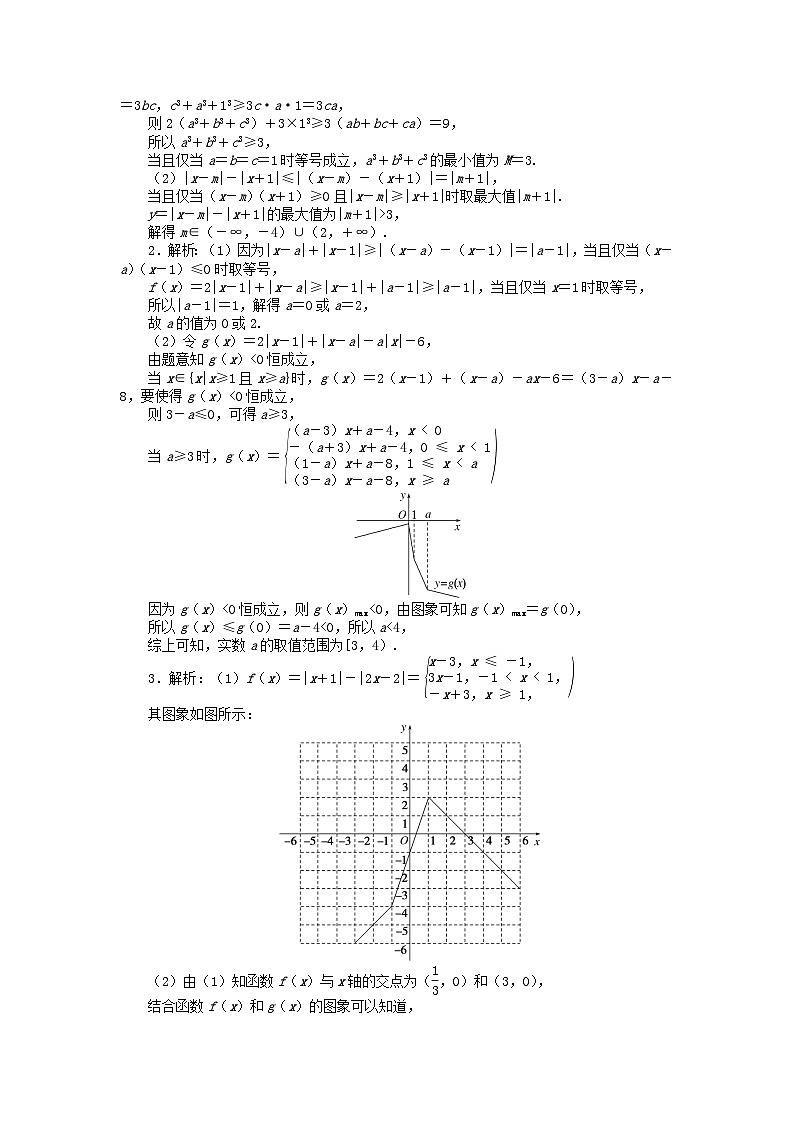 =3bc,c³+a³+1³≥3c·a·1=3ca,
则2(a³+b³+c³)+3×1³≥3(ab+bc+ca)=9,
所以a³+b³+c³≥3,
当且仅当a=b=c=1时等号成立,a³+b³+c³的最小值为M=3.
(2)|x-m|-|x+1|≤|(x-m)-(x+1)|=|m+1|,
当且仅当(x-m)(x+1)≥0且|x-m|≥|x+1|时取最大值|m+1|.
y=|x-m|-|x+1|的最大值为|m+1|>3,
解得m∈(-∞,-4)∪(2,+∞).
2.解析:(1)因为|x-a|+|x-1|≥|(x-a)-(x-1)|=|a-1|,当且仅当(x-
a)(x-1)≤0时取等号,
f(x)=2|x-1|+|x-a|≥|x-1|+|a-1|≥|a-1|,当且仅当x=1时取等号,
所以|a-1|=1,解得a=0或a=2,
故a的值为0或2.
(2)令g(x)=2|x-1|+|x-a|-a|x|-6,
由题意知g(x)<0恒成立,
当x∈{x|x≥1且x≥a}时,g(x)=2(x-1)+(x-a)-ax-6=(3-a)x-a-
8,要使得g(x)<0恒成立,
则3-a≤0,可得a≥3,
当a≥3时,g(x)=
(a-3)x+a-4,x<0
-(a+3)x+a-4,0≤x<1
(1-a)x+a-8,1≤x<a
(3-a)x-a-8,x≥a
y
O 1 a
x
y=g(x)
因为g(x)<0恒成立,则g(x)max<0,由图象可知g(x)max=g(0),
所以g(x)≤g(0)=a-4<0,所以a<4,
综上可知,实数a的取值范围为[3,4).
3.解析:(1)f(x)=|x+1|-|2x-2|=
x-3,x≤-1,
3x-1,-1<x<1,
-x+3,x≥1,
其图象如图所示:
y
5
4
3
2
1
-6 -5 -4 -3 -2 -1 O 1 2 3 4 5 6 x
-1
-2
-3
-4
-5
-6
(2)由(1)知函数f(x)与x轴的交点为(1/3,0)和(3,0),
结合函数f(x)和g(x)的图象可以知道,